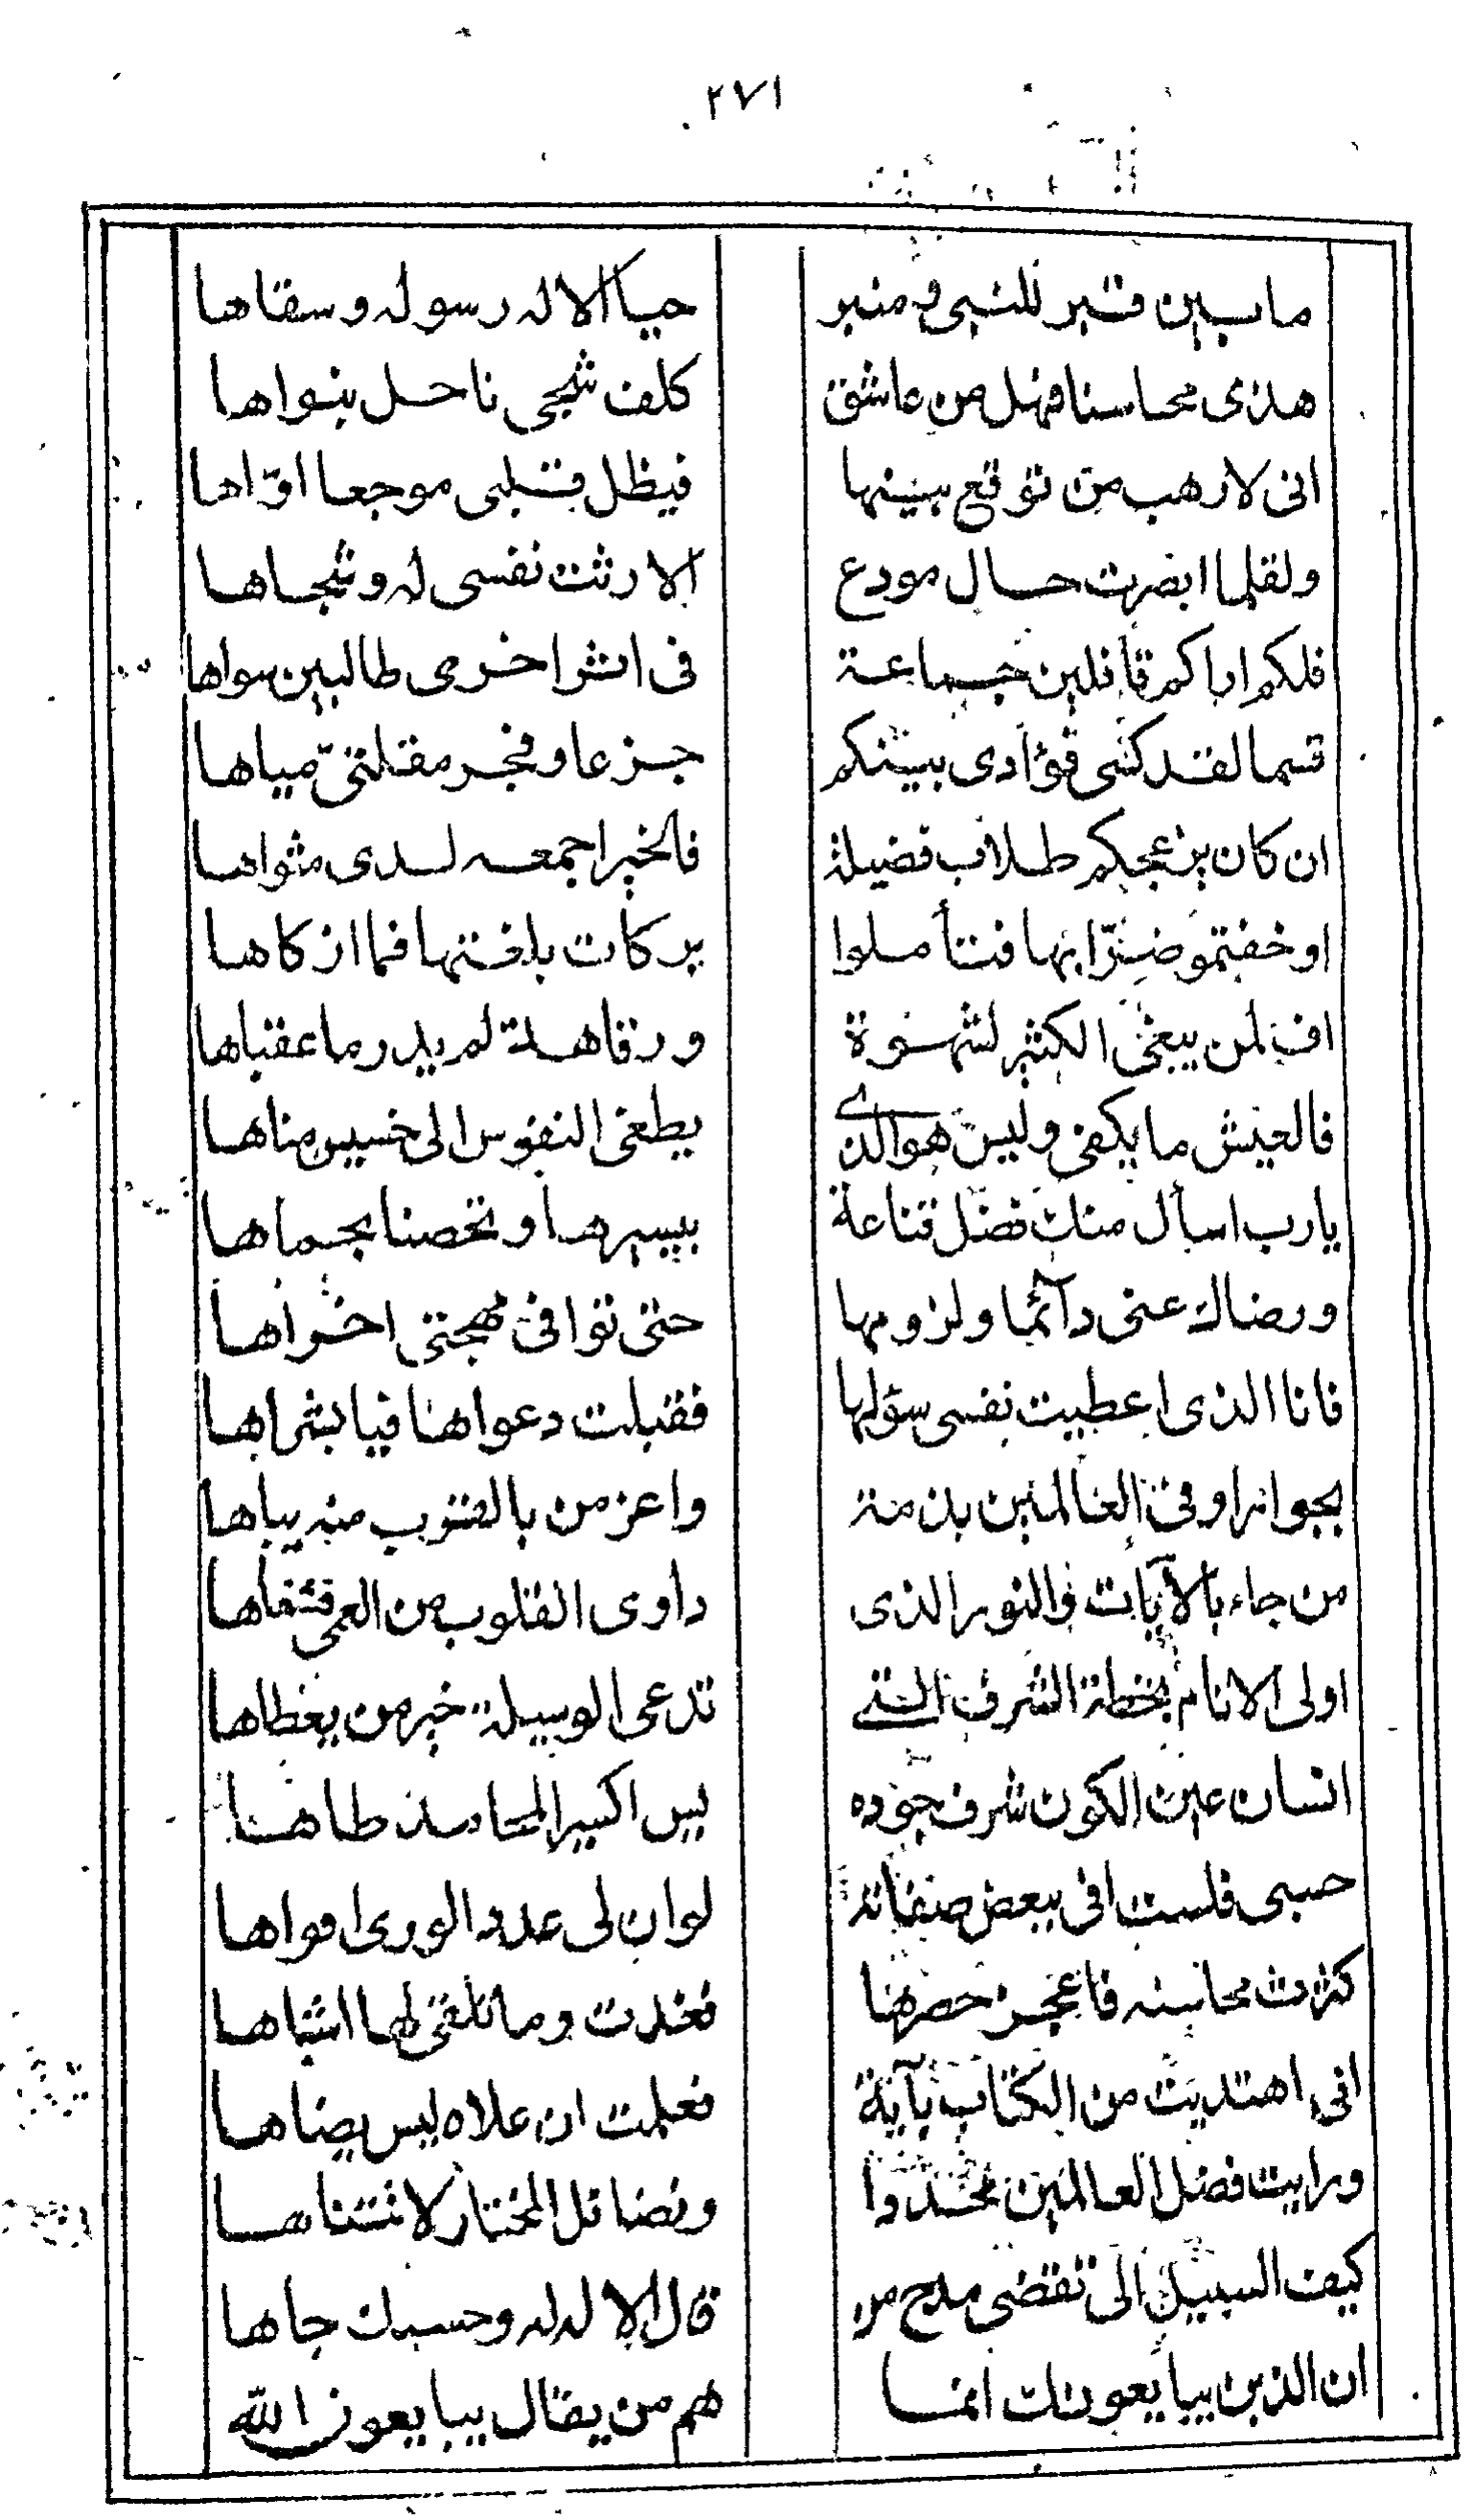 ٢٧١
ما بين قبر للنبى ومنبر حيا الاله رسوله وسقاها
هذى محاسنا فهل من عاشق كلف شجى ناحل بنواها
انى لارهب من توقع بينها فيظل قلبى موجعا اوّاها
ولقلما ابصرت حال مودع الا رثت نفسى له وشجاها
فلكم اراكم قافلين جماعة فى اثر اخرى طالبين سواها
قسما لقد كسى فؤادى بينكم جزعا وفجر مقلتىّ مياها
ان كان يزعجكم طلاب فضيلة فالخير اجمعه لدى مثواها
او خفتمو ضرّا بها فتأملوا بركات بلغتها فما ازكاها
اف لمن يبغى الكثير لشهوة ورفاهة لم يدر ما عقباها
فالعيش ما يكفى وليس هو الذى يطغى النفوس الى خسيس مناها
يارب اسأل منك فضل قناعة بيسيرها وتحصنا بحماها
ورضاك عنى دآئما ولزومها حتى توافى مهجتى اخراها
فانا الذى اعطيت نفسى سؤلها فقبلت دعواها فيا بشراها
بجوار اوفى العالمين بذمة واعز من بالقرب منه يباها
من جاء بالآيات والنور الذى داوى القلوب من العمى فشفاها
اولى الانام بخطة الشرف التى تدعى الوسيلة خير من يعطاها
انسان عين الكون شرف جوده يس اكسير المحامد طاها
حسبى فلست افى ببعض صفاته لو ان لى عدد الورى افواها
كثرت محاسنه فاعجز حصرها فغدت وما تلقى لها اشباها
انى اهتديت من الكتاب بآية فعلمت ان علاه ليس يضاها
ورايت فضل العالمين محددا وفضائل المختار لا تتناها
كيف السبيل الى تقضى مدح من قال الاله له وحسبك جاها
ان الذين يبايعونك انما هم من يقال يبايعون الله